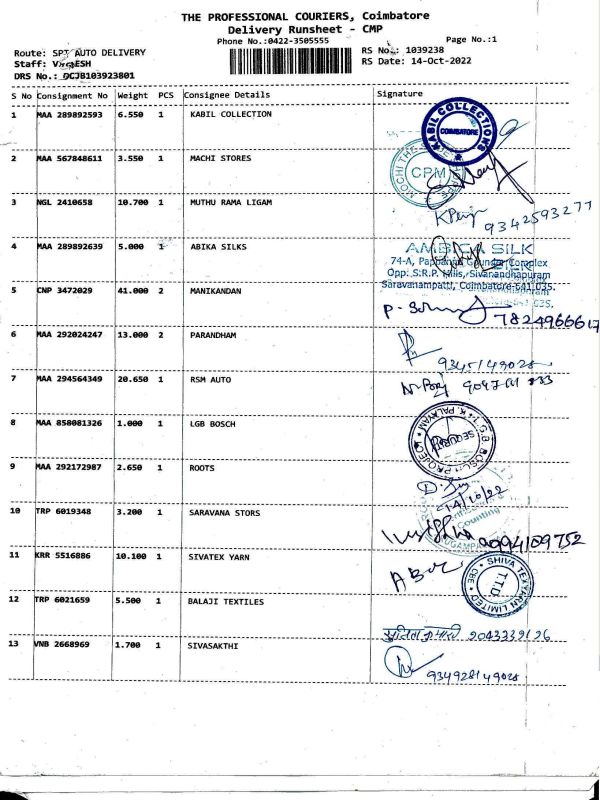 THE PROFESSIONAL COURIERS, Coimbatore
Delivery Runsheet - CMP
Phone No.:0422-3505555
Page No.:1
Route: SPT AUTO DELIVERY
RS No.: 1039238
Staff:
RS Date: 14-Oct-2022
DRS No.: DCJB103923801
S No Consignment No Weight PCS Consignee Details Signature
1 MAA 289892593 6.550 1 KABIL COLLECTION
KABIL COLLECTIONS
COIMBATORE
2 MAA 567848611 3.550 1 MACHI STORES
CPM
3 NGL 2410658 10.700 1 MUTHU RAMA LIGAM
9342593277
4 MAA 289892639 5.000 1 ABIKA SILKS
AMBIGA SILK
74-A, Complex
Opp: S.R.P. Mills, Sivanandhapuram
Saravanampatti, Coimbatore-641 035.
5 CNP 3472029 41.000 2 MANIKANDAN
7824966617
6 MAA 292024247 13.000 2 PARANDHAM
7 MAA 294564349 20.650 1 RSM AUTO
8 MAA 858081326 1.000 1 LGB BOSCH
SECURITY
9 MAA 292172987 2.650 1 ROOTS
14/10/22
10 TRP 6019348 3.200 1 SARAVANA STORS
Counting
11 KRR 5516886 10.100 1 SIVATEX YARN
SHIVA TEXYARN LIMITED
CBE
T.T.D.
12 TRP 6021659 5.500 1 BALAJI TEXTILES
13 VNB 2668969 1.700 1 SIVASAKTHI